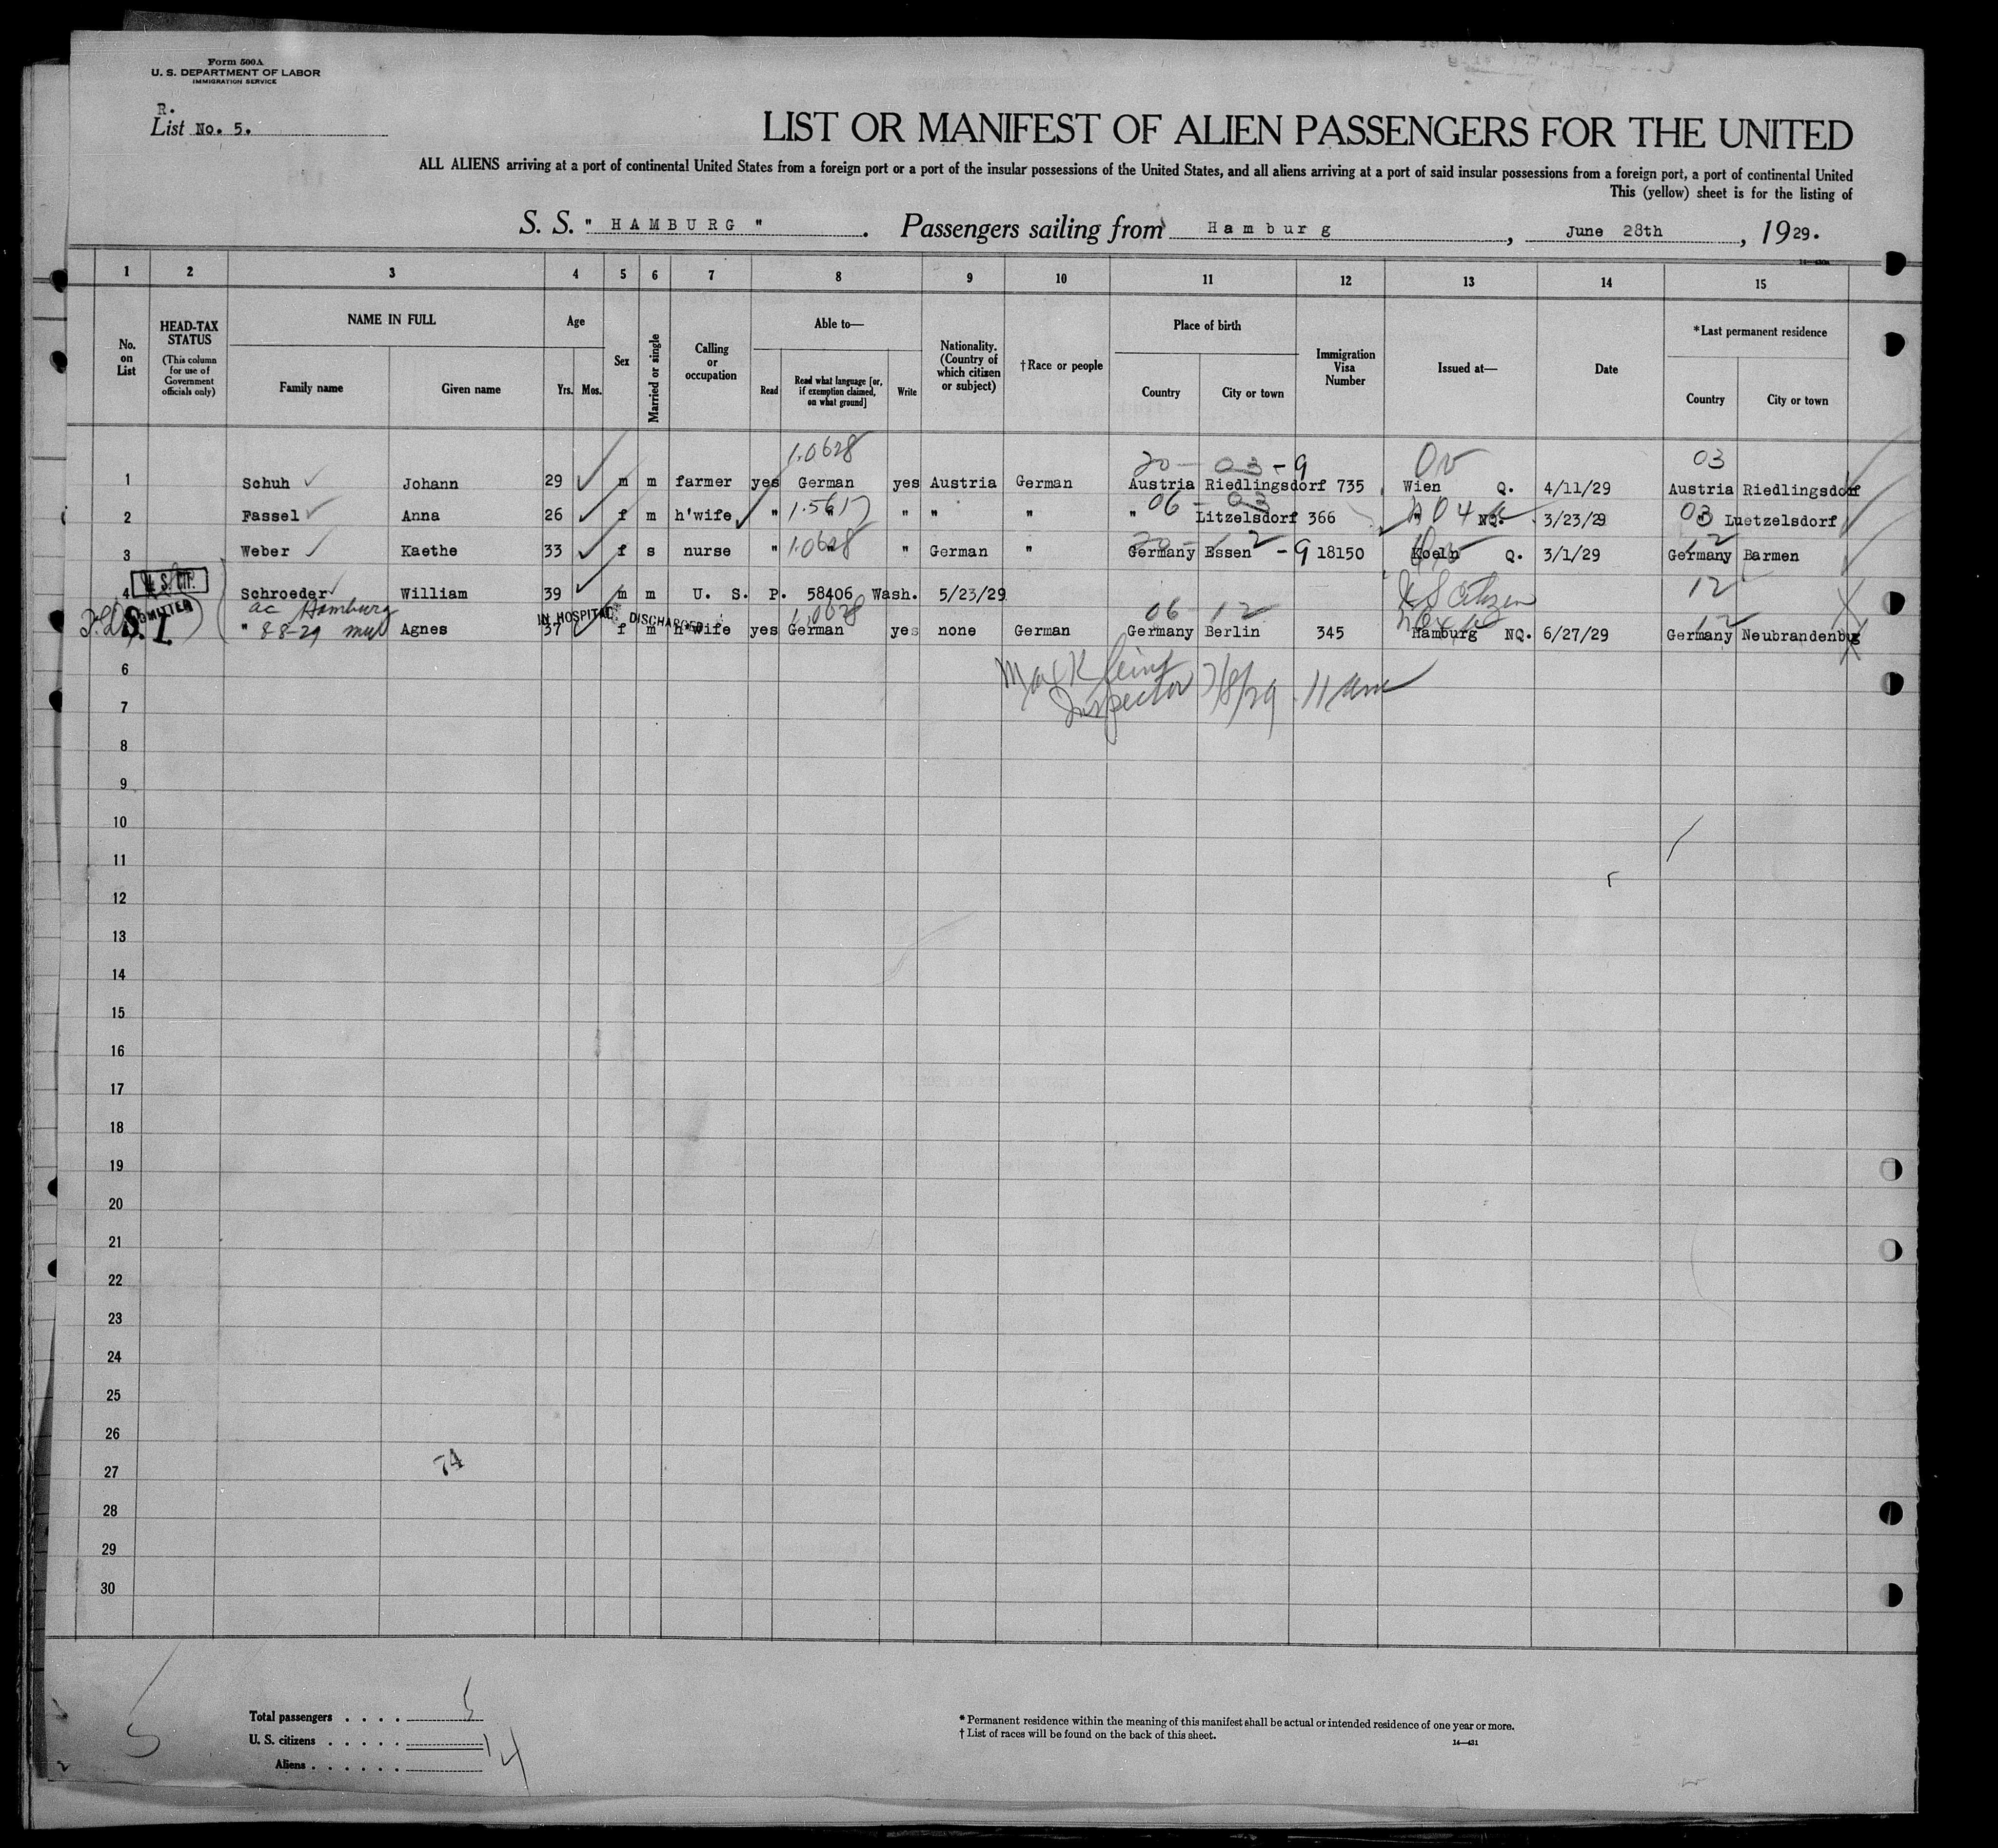 Form 500A
U. S. DEPARTMENT OF LABOR
IMMIGRATION SERVICE
R.
List No. 5.
LIST OR MANIFEST OF ALIEN PASSENGERS FOR THE UNITED
ALL ALIENS arriving at a port of continental United States from a foreign port or a port of the insular possessions of the United States, and all aliens arriving at a port of said insular possessions from a foreign port, a port of continental United
This (yellow) sheet is for the listing of
S. S. " HAMBURG ". Passengers sailing from Hamburg, June 28th, 1929.
1 2 3 4 5 6 7 8 9 10 11 12 13 14 15
No. on List
HEAD-TAX STATUS
(This column for use of Government officials only)
NAME IN FULL
Family name Given name
Age
Yrs. Mos.
Sex
Married or single
Calling or occupation
Able to—
Read
Read what language [or, if exemption claimed, on what ground]
Write
Nationality. (Country of which citizen or subject)
† Race or people
Place of birth
Country City or town
Immigration Visa Number
Issued at—
Date
*Last permanent residence
Country City or town
1.0628 20 - 03 - 9 03
1 Schuh Johann 29 m m farmer yes German yes Austria German Austria Riedlingsdorf 735 Wien Q. 4/11/29 Austria Riedlingsdorf
1.5617 06 - 03 03
2 Fassel Anna 26 f m h'wife " " " " " " Litzelsdorf 366 " NQ. 3/23/29 Luetzelsdorf
1.0628 12 - 9 12
3 Weber Kaethe 33 f s nurse " " " German " Germany Essen 18150 Koeln Q. 3/1/29 Germany Barmen
U. S. CIT.
4 Schroeder William 39 m m U. S. P. 58406 Wash. 5/23/29 U S Citizen 12
ADMITTED
S. I.
ac Hamburg
8-8-29
IN HOSPITAL DISCHARGED
1.0628 06 - 12 12
" Agnes 37 f m h'wife yes German yes none German Germany Berlin 345 Hamburg NQ. 6/27/29 Germany Neubrandenbg
6
Inspector 7/8/29. 11 am
7
8
9
10
11
12
13
14
15
16
17
18
19
20
21
22
23
24
25
26
27
74
28
29
30
Total passengers . . . . 5
U. S. citizens . . . . . 1
Aliens . . . . . . 4
* Permanent residence within the meaning of this manifest shall be actual or intended residence of one year or more.
† List of races will be found on the back of this sheet.
14—431